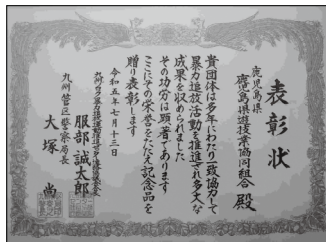 表彰状
鹿児島県
鹿児島県遊技業協同組合 殿
貴団体は多年にわたり一致協力して
暴力追放活動を推進され多大な
成果を収められました
その功労は顕著であります
ここにその栄誉をたたえ記念品を
贈り表彰します
令和五年七月十三日
服部 誠太郎
九州管区警察局長
大塚 尚